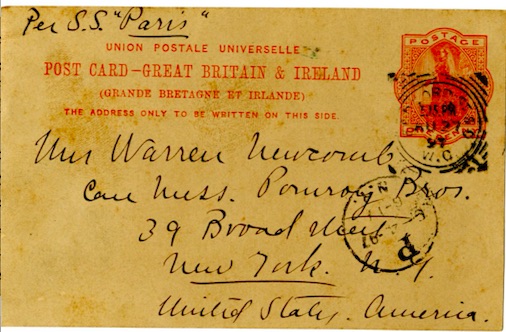 Per S.S. "Paris"
UNION POSTALE UNIVERSELLE
POST CARD–GREAT BRITAIN & IRELAND
(GRANDE BRETAGNE ET IRLANDE)
THE ADDRESS ONLY TO BE WRITTEN ON THIS SIDE.
POSTAGE
W.C
Warren Newcomb
Care Mess. Pomroy Bros.
39 Broad Street
New York. N. Y.
United States, America.